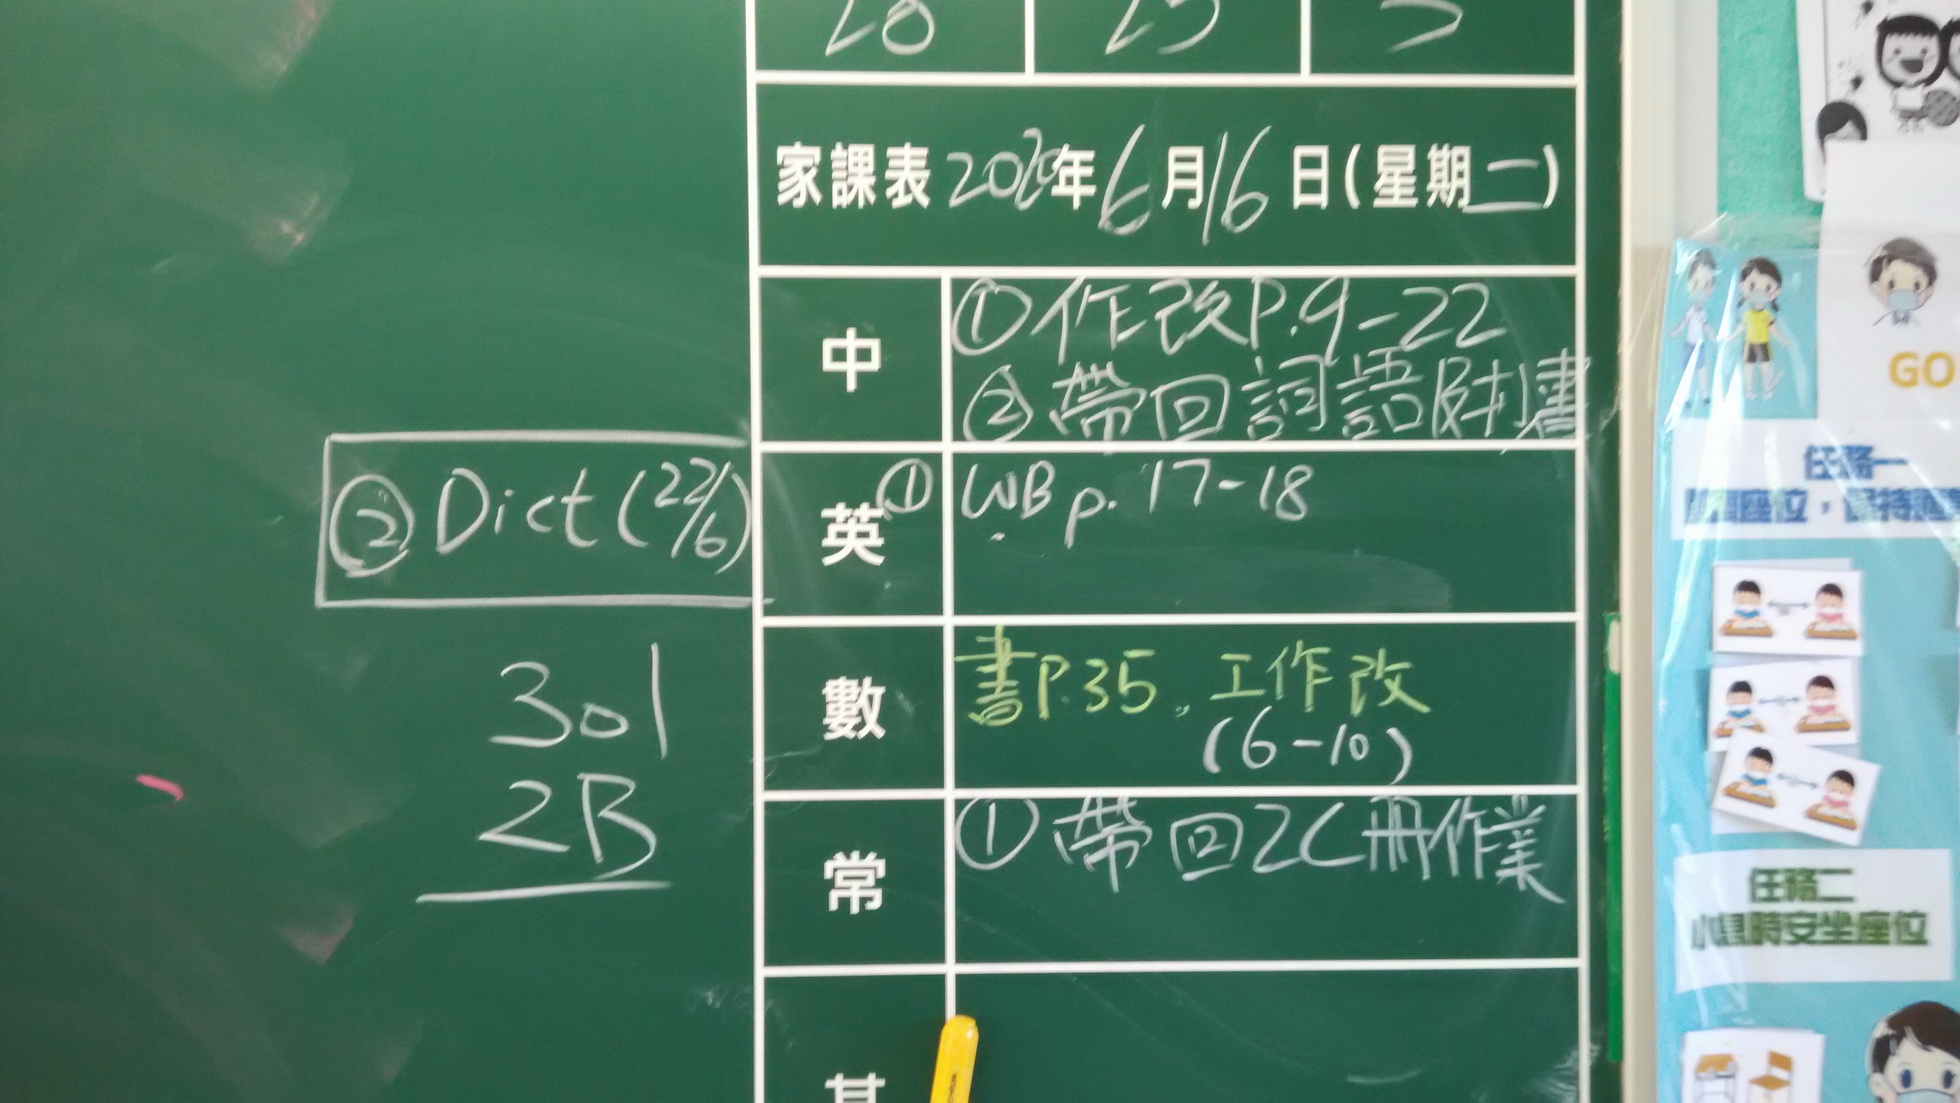 28 25 3
家課表2020年6月16日(星期二)
中
①作改P.9-22
②帶回詞語財書
英
①WB p.17-18
②Dict(22/6)
數
書P.35,工作改
(6-10)
301
2B
常
①帶回2C冊作業
其
GO
任務一
任務二
小息時安坐座位